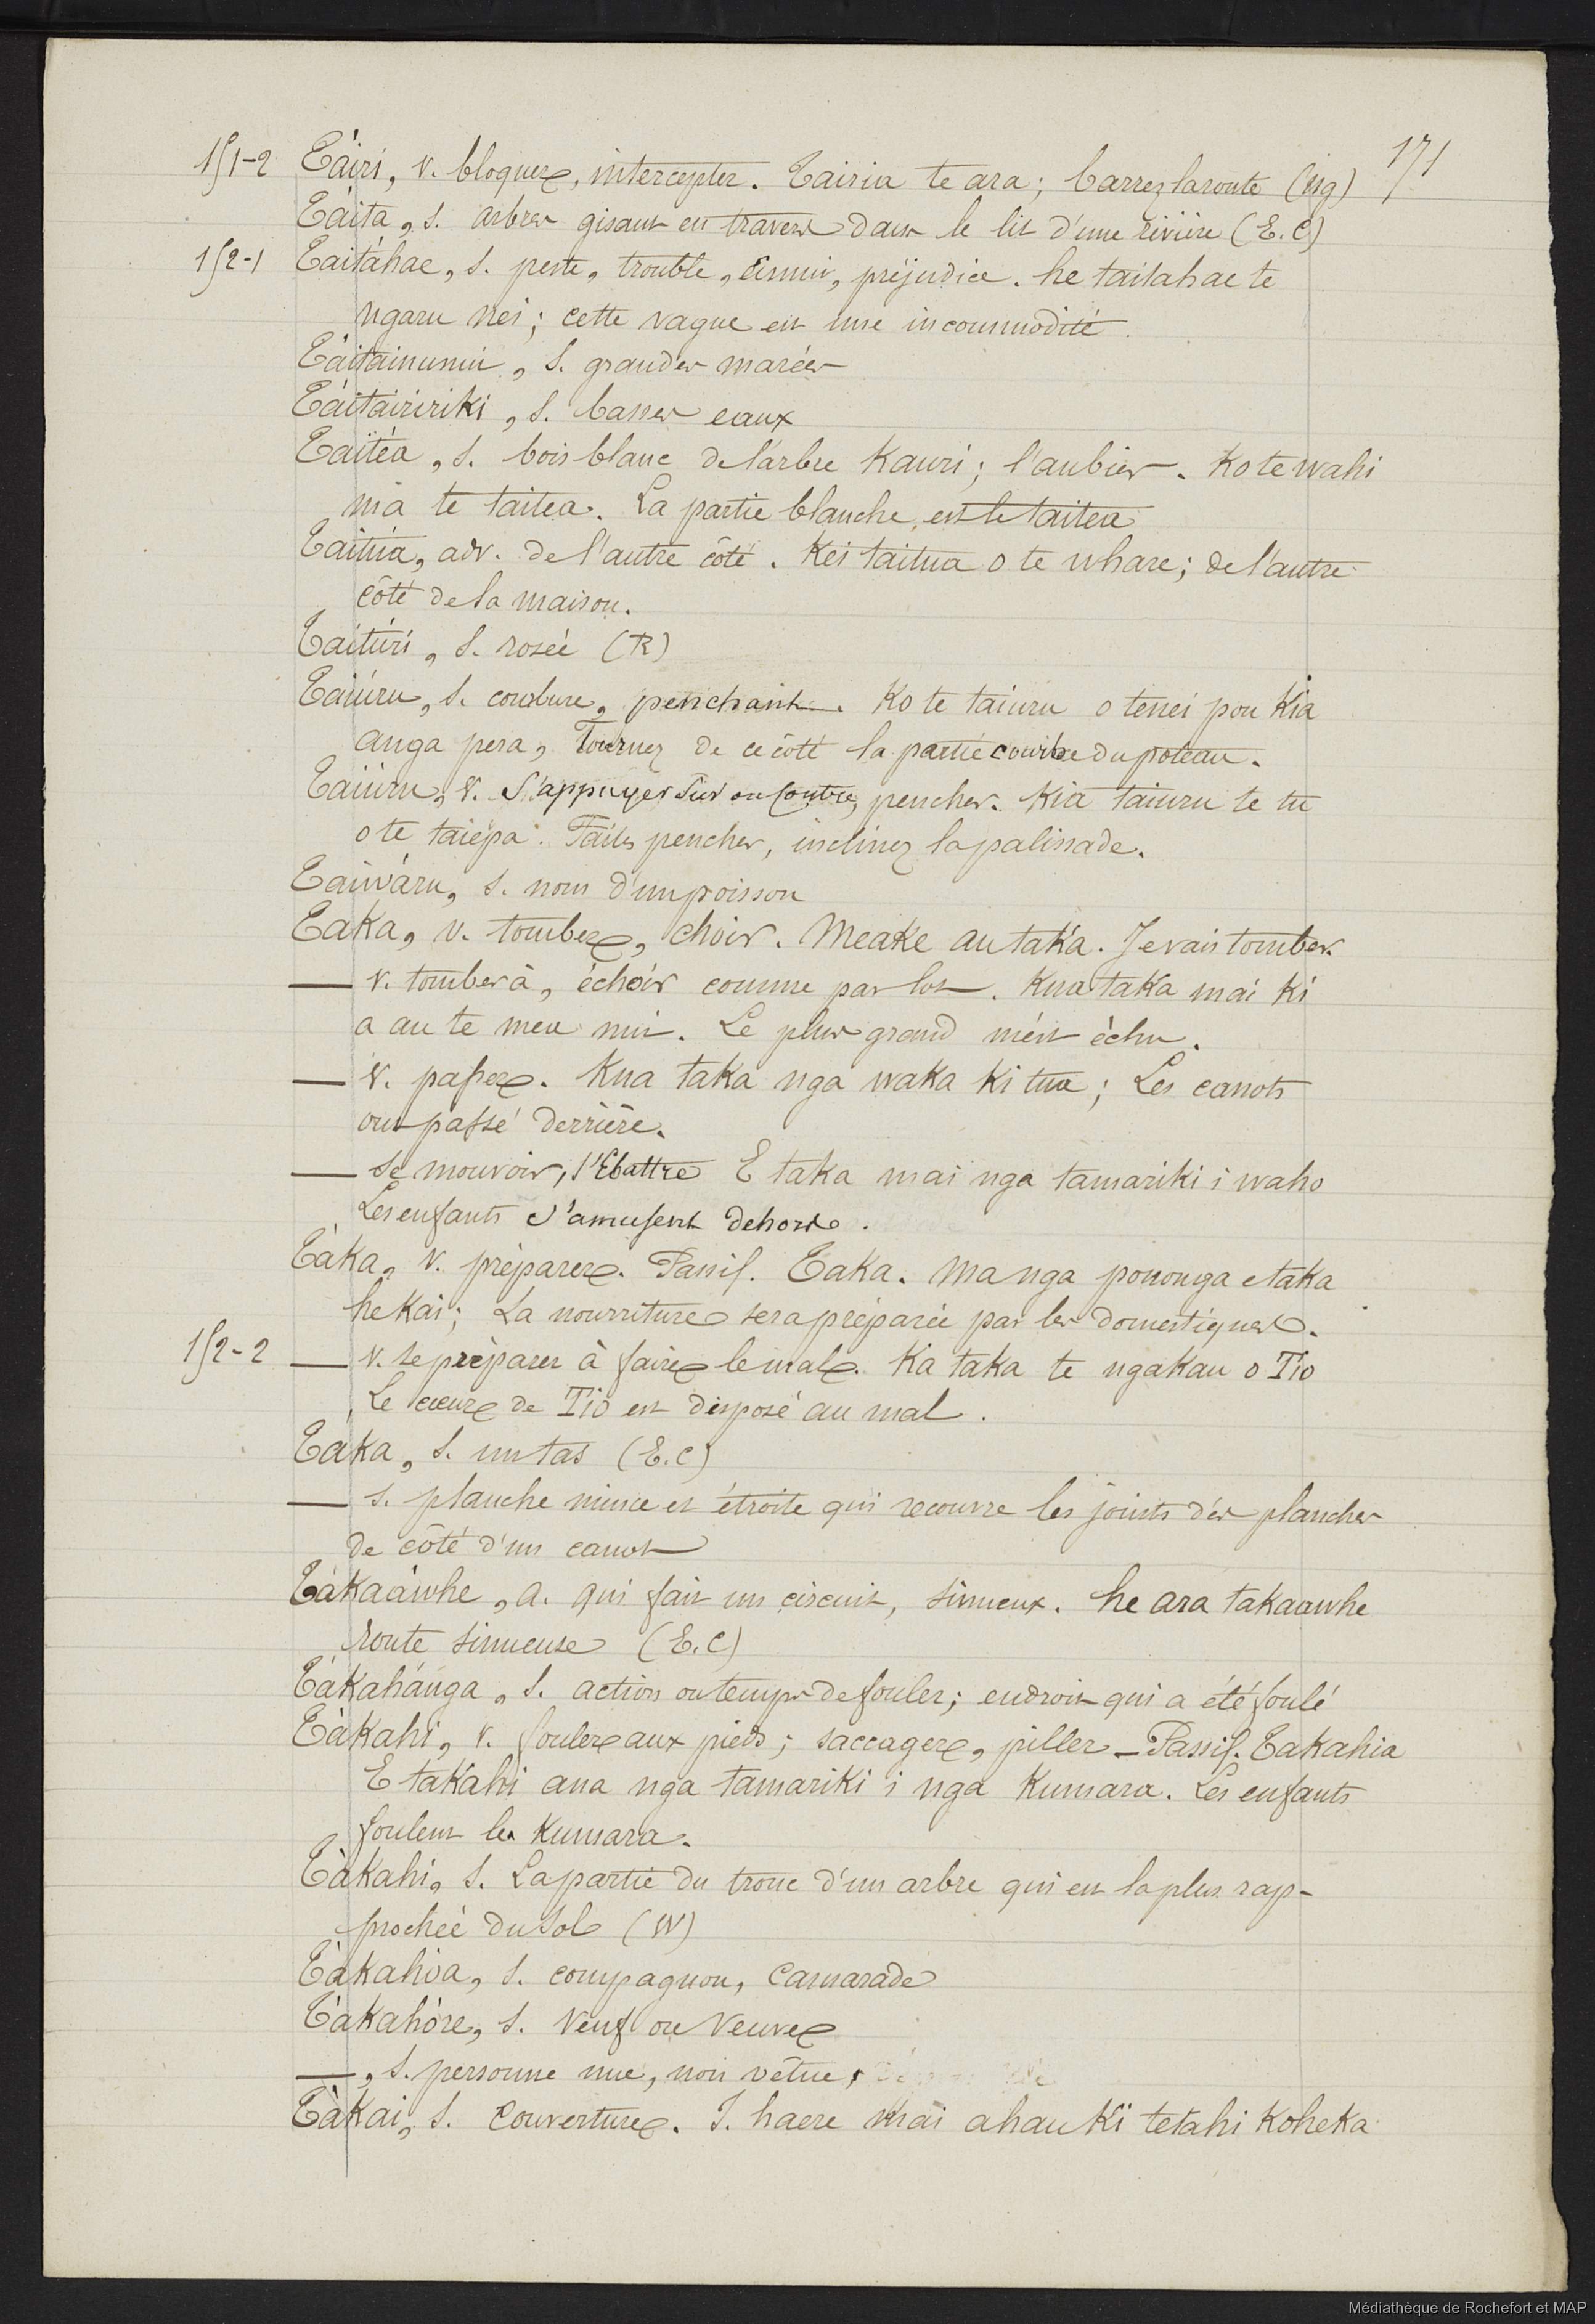 171
151-2 Táiri, v. bloquer, intercepter. Tairia te ara; barrez la route (Ng)
Táita, s. arbres gisant en travers dans le lit d'une rivière (E.C)
152-1 Taitáhae, s. peste, trouble, ennui, préjudice. he taitahae te
ngaru nei; cette vague est une incommodité.
Táitainunui, s. grandes marées
Táitairiríki, s. basses eaux
Taitéa, s. bois blanc de l'arbre Kauri; l'aubier. Ko te wahi
ma te taitea. La partie blanche, est le taitea
Taitúa, adv. de l'autre côté. Kei taitua o te whare; de l'autre
côté de la maison.
Taitúri, s. rosée (R)
Taiúru, s. courbure, penchant. Ko te taiuru o tenei pou Kia
anga pera, Tournez de ce côté la partie courbe du poteau.
Taiúru, v. S'appuyer sur ou contre, pencher. Kia taiuru te tu
o te taiepa. Faites pencher, inclinez la palissade.
Taiwáru, s. nom d'un poisson
Taka, v. tomber, choir. Meake au taka. Je vais tomber.
— v. tomber à, échoir comme par lot. Kua taka mai ki
a au te mea nui. Le plus grand m'est échu.
— v. passer. Kua taka nga waka ki tua; Les canots
ont passé derrière.
— Se mouvoir, s'Ebattre E taka mai nga tamariki i waho
Les enfants s'amusent dehors.
Táka, v. préparer. Passif. Taka. Ma nga pononga e taka
he kai; La nourriture sera préparée par les domestiques.
152-2 — v. se préparer à faire le mal. Ka taka te ngakau o Tio
Le cœur de Tio est disposé au mal.
Taka, s. un tas (E.C)
— s. planche mince et étroite qui recouvre les joints des planches
de côté d'un canot
Tákaáwhe, a. qui fait un circuit, sinueux. he ara takaawhe
route sinueuse (E.C)
Tákahánga, s. action ou temps de fouler; endroit qui a été foulé
Tákahi, v. fouler aux pieds; saccager, piller – Passif. Takahia
E takahi ana nga tamariki i nga Kumara. Les enfants
foulent les Kumara.
Tákahi, s. La partie du tronc d'un arbre qui est la plus rap-
prochée du sol (W)
Tákahóa, s. compagnon, camarade
Tákahóre, s. Veuf ou Veuve
—, s. personne nue, non vêtue,
Tákai, s. Couverture. I. haere mai ahau Ki tetahi Koheka
Médiathèque de Rochefort et MAP